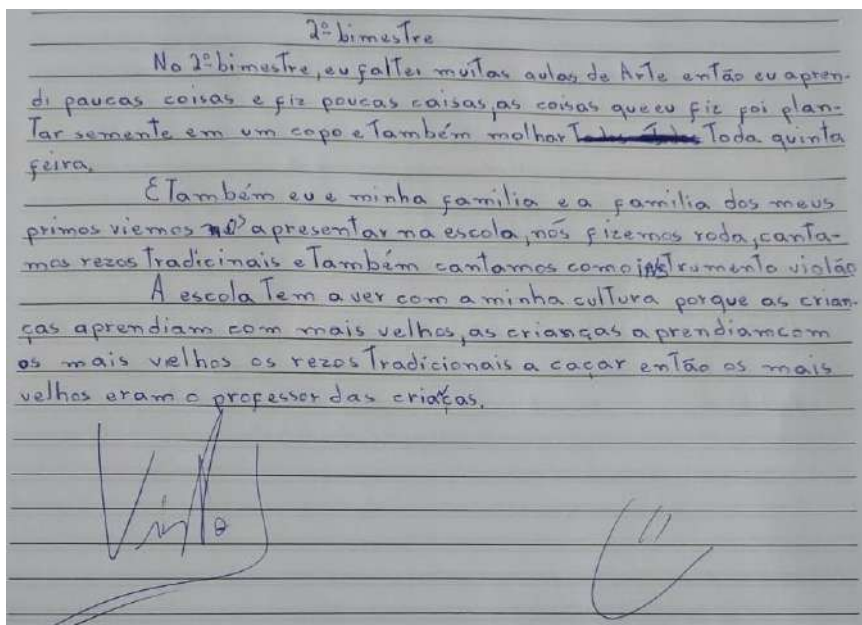 2º bimestre
No 2º bimestre, eu faltei muitas aulas de Arte então eu apren-
di paucas coisas e fiz poucas caisas, as coisas que eu fiz foi plan-
Tar semente em um copo e Também molhar Toda quinta
feira.
E Também eu e minha familia e a familia dos meus
primos viemos apresentar na escola, nós fizemos roda, canta-
mos rezos Tradicinais e Também cantamos com o instrumento violão
A escola Tem a ver com a minha cultura porque as crian-
ças aprendiam com mais velhos, as crianças aprendiam com
os mais velhos os rezos Tradicionais a caçar então os mais
velhos eram o professor das criaças.